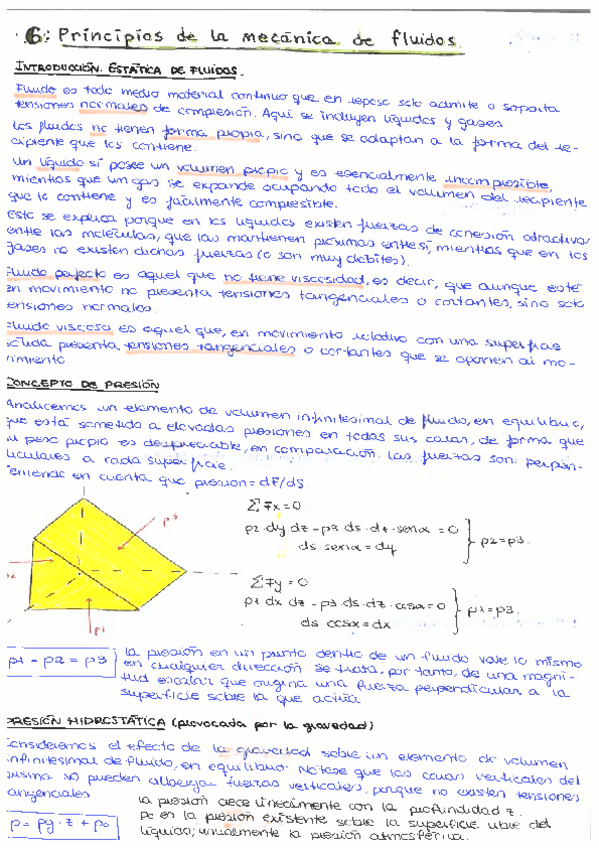 6: Principios de la mecánica de fluidos.
INTRODUCCIÓN. ESTÁTICA DE FLUIDOS.
Fluido es todo medio material continuo que en reposo solo admite o soporta
tensiones normales de compresión. Aquí se incluyen líquidos y gases
Los fluidos no tienen forma propia, sino que se adaptan a la forma del re-
cipiente que los contiene.
Un líquido sí posee un volumen propio y es esencialmente incompresible,
mientras que un gas se expande ocupando todo el volumen del recipiente
que lo contiene y es fácilmente compresible.
Esto se explica porque en los líquidos existen fuerzas de cohesión atractivas
entre las moléculas, que las mantienen próximas entre sí, mientras que en los
gases no existen dichas fuerzas (o son muy débiles).
Fluido perfecto es aquel que no tiene viscosidad, es decir, que aunque esté
en movimiento no presenta tensiones tangenciales o cortantes, sino solo
tensiones normales.
Fluido viscoso es aquel que, en movimiento relativo con una superficie
sólida presenta tensiones tangenciales o cortantes que se oponen al mo-
vimiento
CONCEPTO DE PRESIÓN
Analicemos un elemento de volumen infinitesimal de fluido, en equilibrio,
que está sometido a elevadas presiones en todas sus caras, de forma que
su peso propio es despreciable, en comparación. Las fuerzas son perpen-
diculares a cada superficie.
Teniendo en cuenta que presión = dF/ds
ΣFx = 0
p2·dy dz - p3 ds·dz·senα = 0
ds·senα = dy
p2 = p3.
ΣFy = 0
p1 dx dz - p3·ds·dz·cosα = 0
ds cosα = dx
p1 = p3.
p3
p2
p1
p1 = p2 = p3
La presión en un punto dentro de un fluido vale lo mismo
en cualquier dirección. Se trata, por tanto, de una magni-
tud escalar que origina una fuerza perpendicular a la
superficie sobre la que actúa
PRESIÓN HIDROSTÁTICA (provocada por la gravedad)
Consideremos el efecto de la gravedad sobre un elemento de volumen
infinitesimal de fluido, en equilibrio. Nótese que las caras verticales del
prisma no pueden albergar fuerzas verticales, porque no existen tensiones
tangenciales
p = ρg·z + p0
la presión crece linealmente con la profundidad z.
p0 es la presión existente sobre la superficie libre del
líquido; usualmente la presión atmosférica.